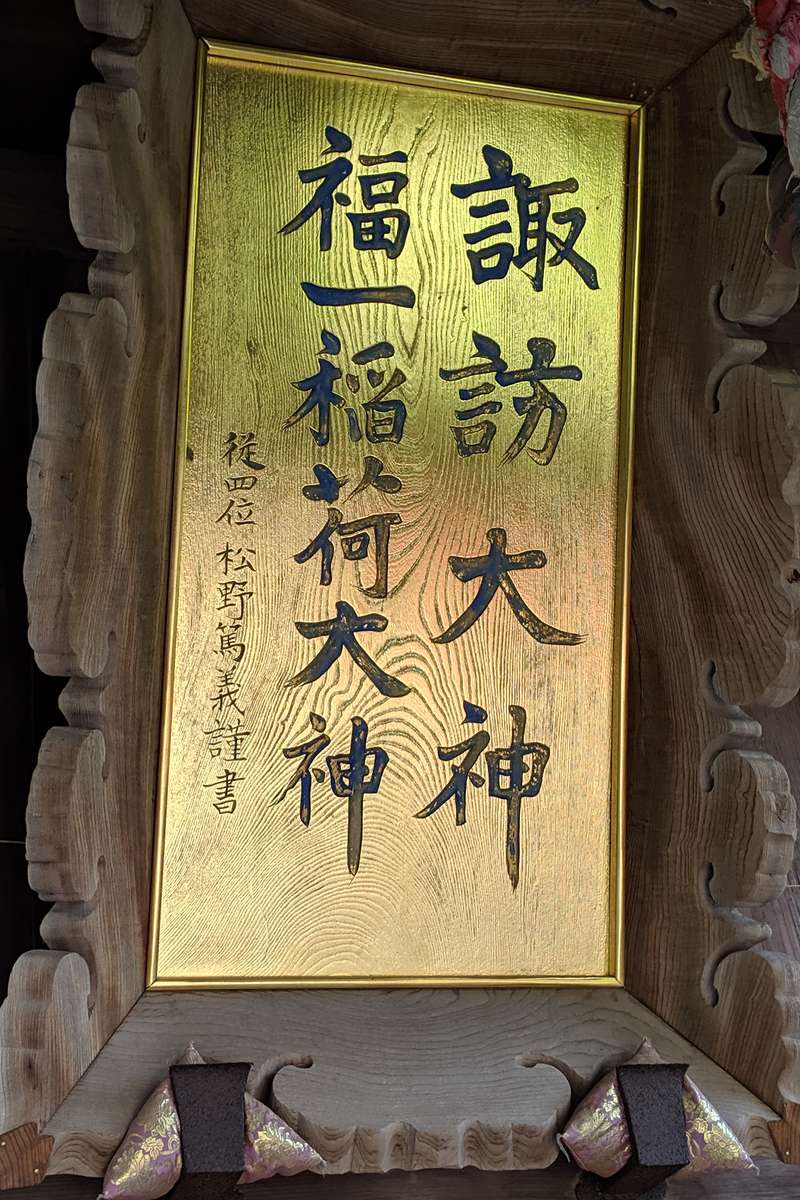 諏訪大神
福一稲荷大神
従四位 松野篤義謹書